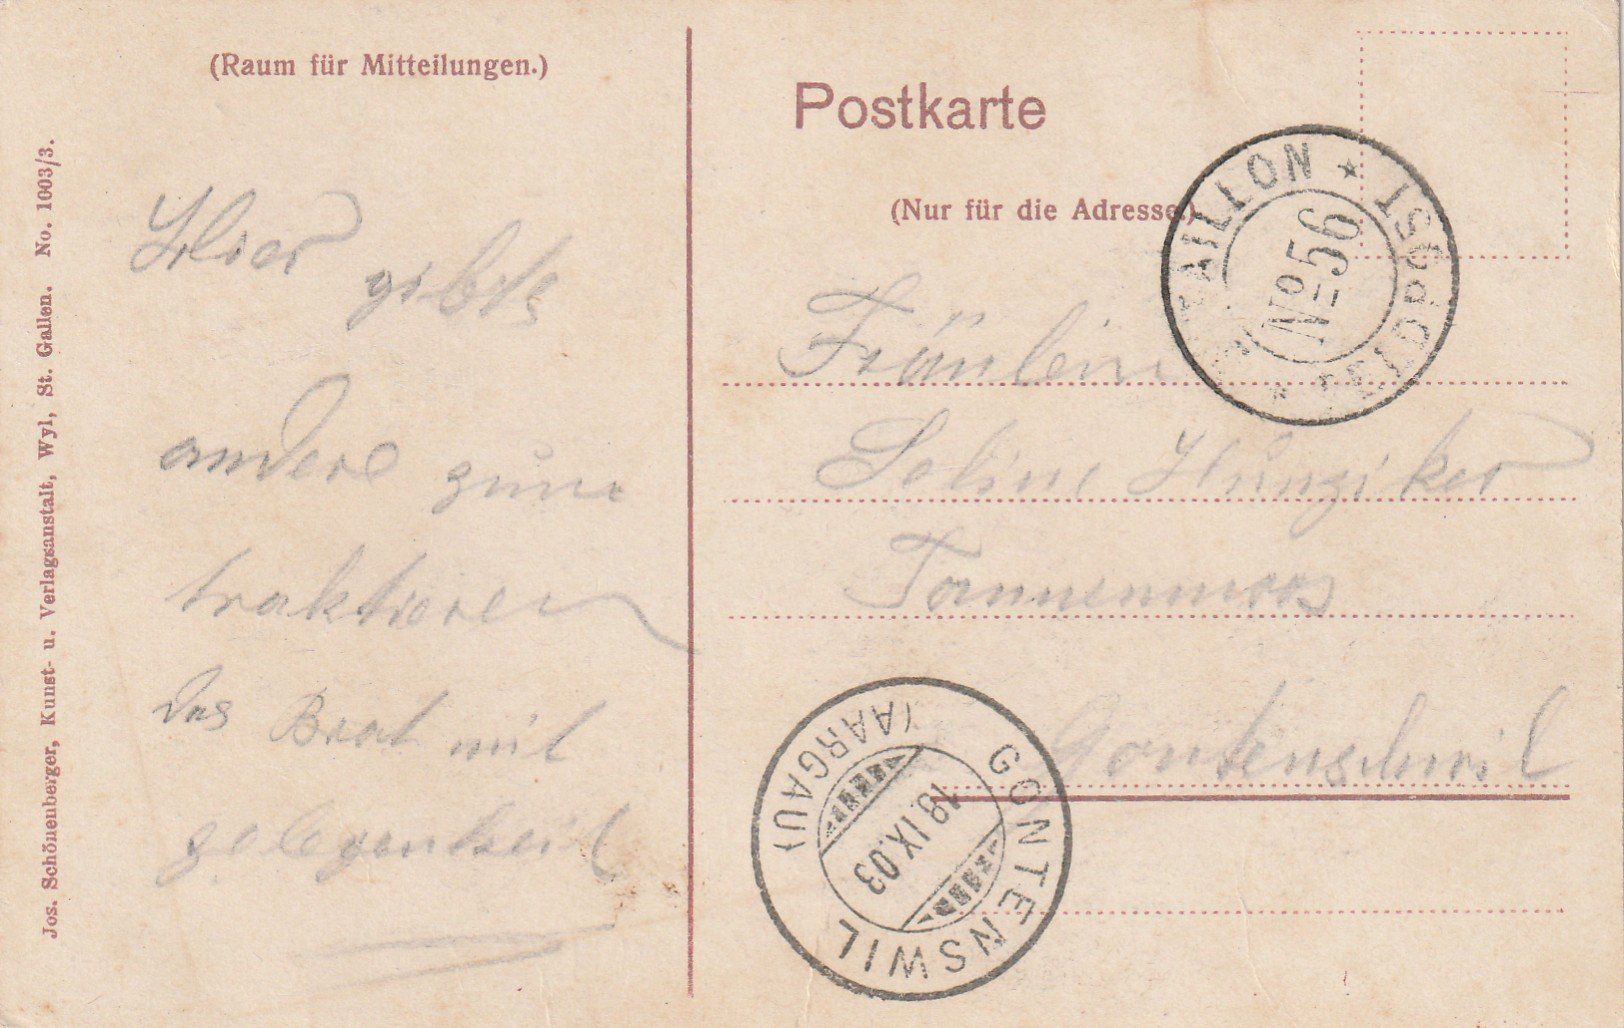 (Raum für Mitteilungen.)
Hier gibts
andere zum
traktieren
das Brot mit
gelegenheit
Jos. Schönenberger, Kunst- u. Verlagsanstalt, Wyl, St. Gallen. No. 1003/3.
Postkarte
(Nur für die Adresse.)
Fräulein
Seline Hunziker
Tannenmoos
Gontenschwil
TAILLON * FELDPOST *
No 56
GONTENSWIL
(AARGAU)
19.IX.03